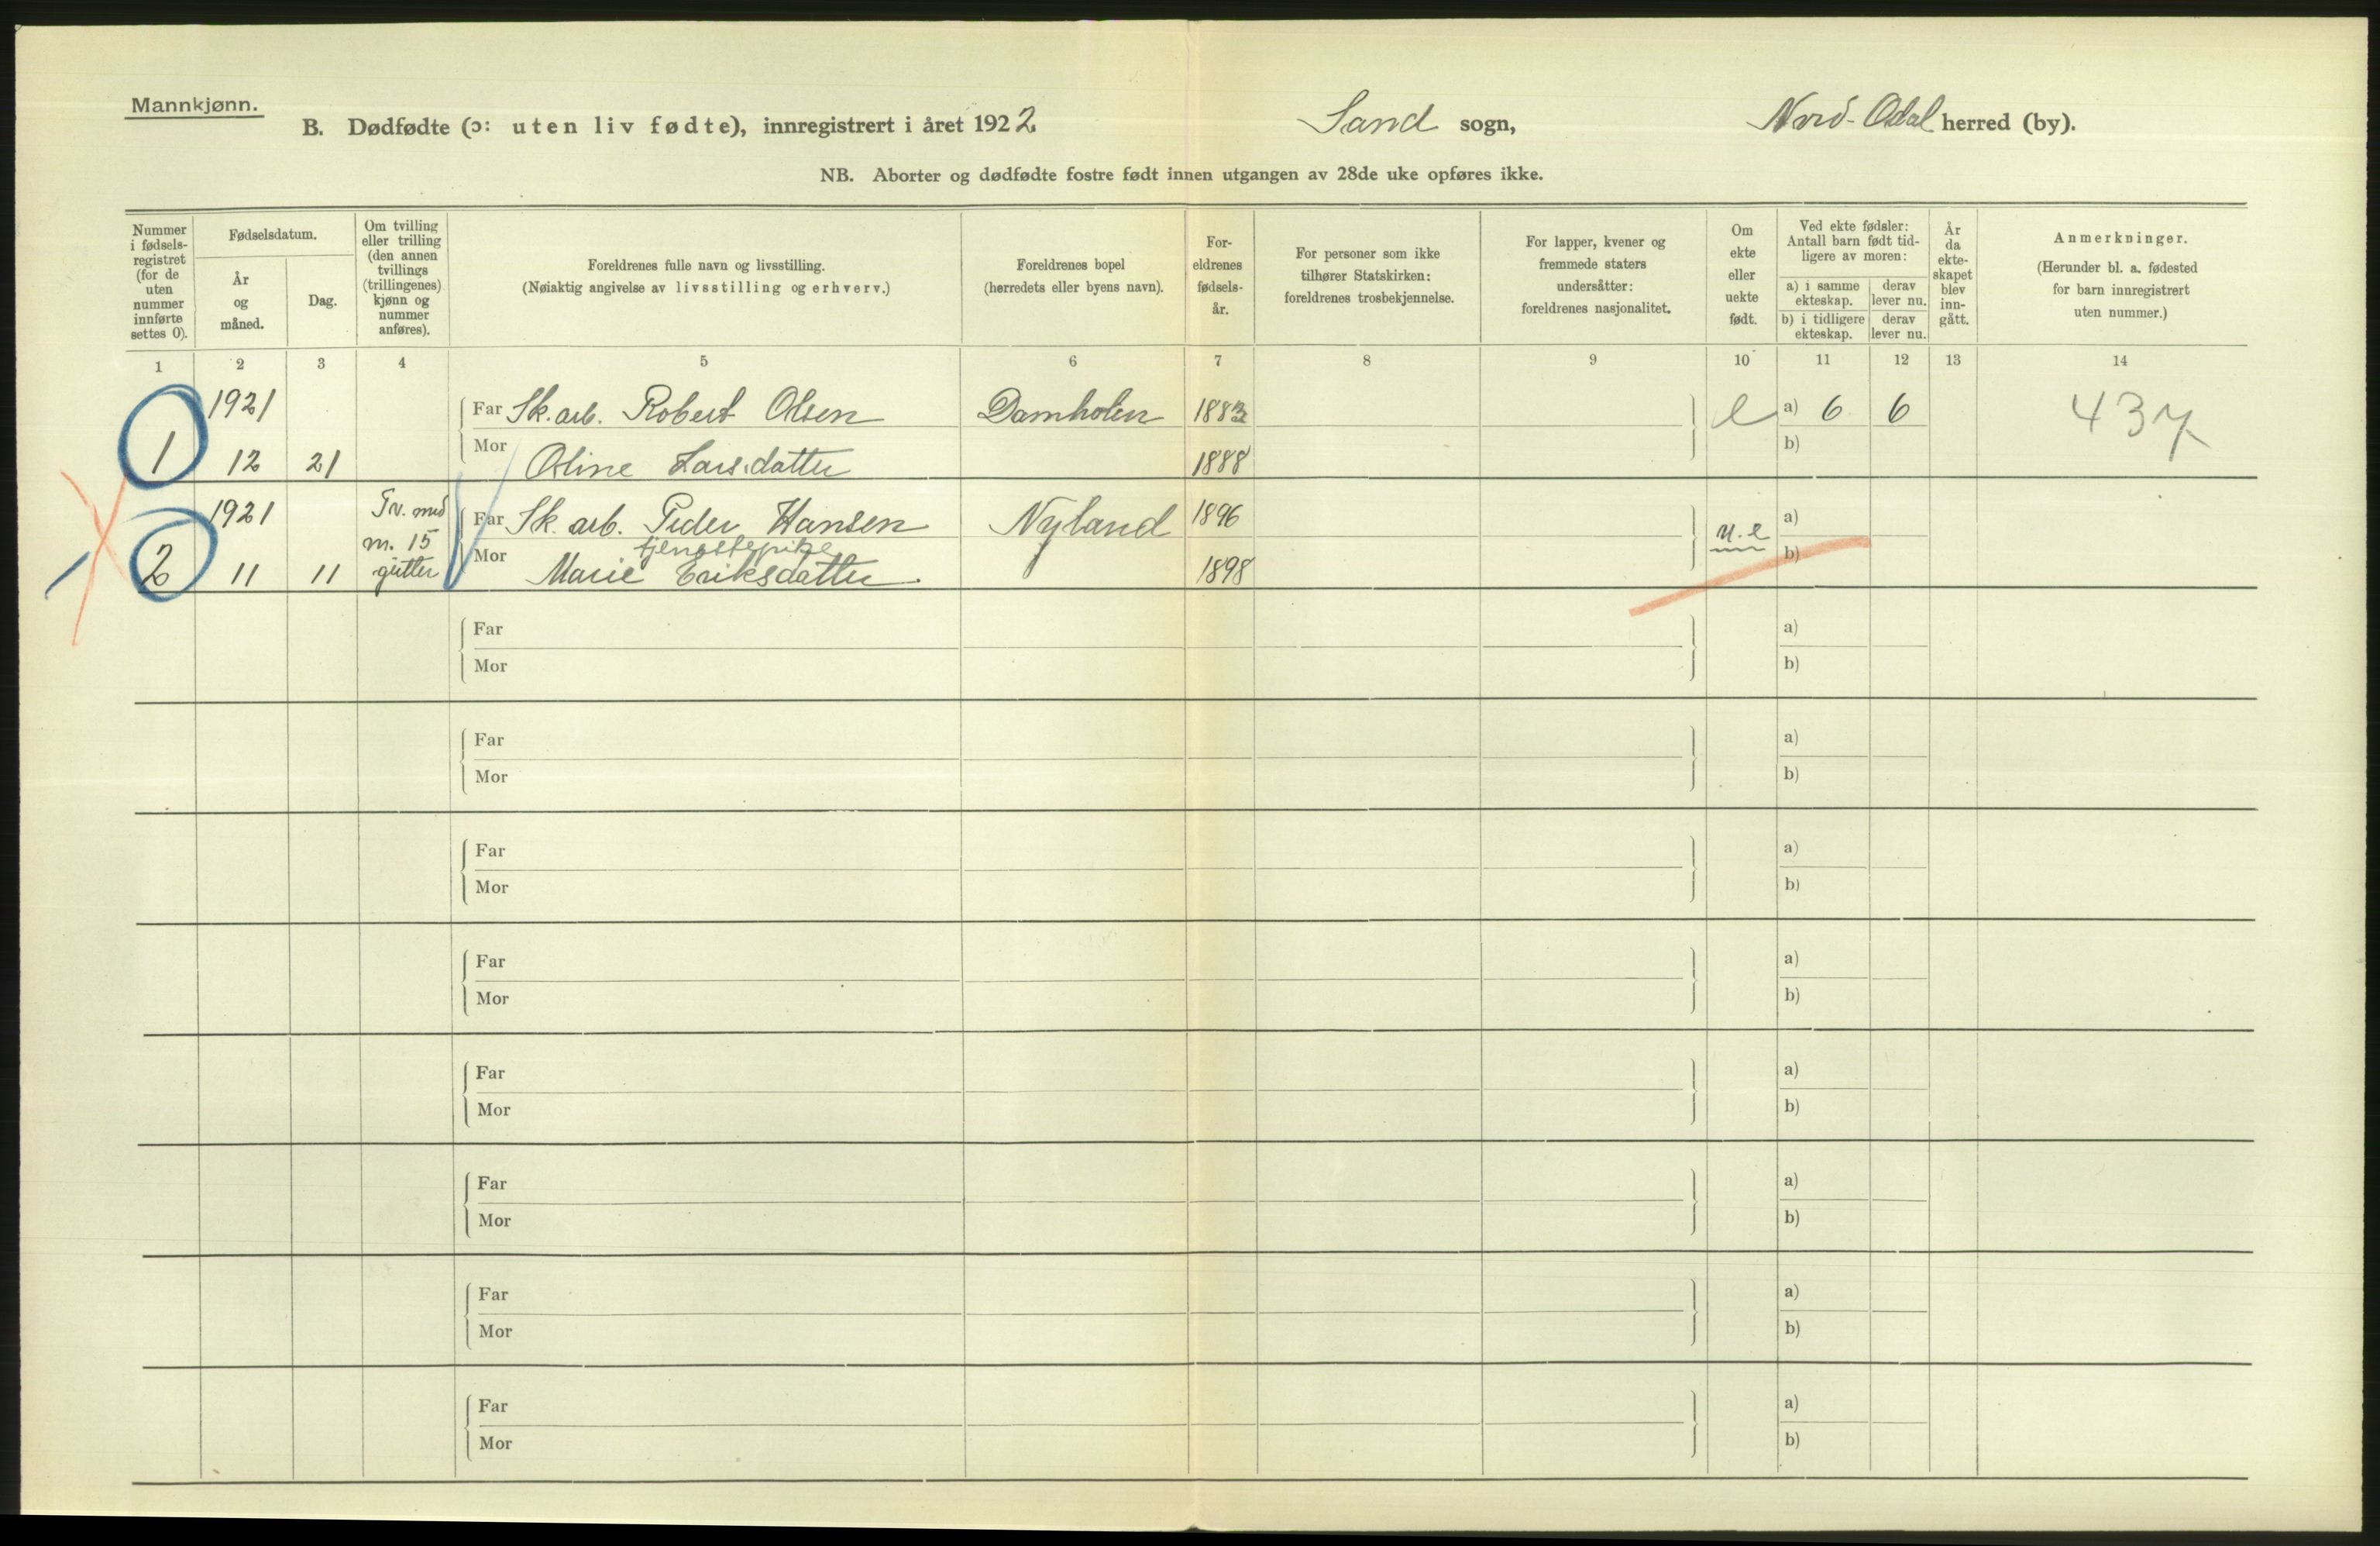 Mannkjønn.
B. Dødfødte (ɔ: uten liv fødte), innregistrert i året 1922
Sand sogn,
Nord-Odal herred (by).
NB. Aborter og dødfødte fostre født innen utgangen av 28de uke opføres ikke.
Nummer i fødsels-registret (for de uten nummer innførte settes 0).
Fødselsdatum.
År og måned.
Dag.
Om tvilling eller trilling (den annen tvillings (trillingenes) kjønn og nummer anføres).
Foreldrenes fulle navn og livsstilling.
(Nøiaktig angivelse av livsstilling og erhverv.)
Foreldrenes bopel
(herredets eller byens navn).
For-eldrenes fødsels-år.
For personer som ikke tilhører Statskirken: foreldrenes trosbekjennelse.
For lapper, kvener og fremmede staters undersåtter: foreldrenes nasjonalitet.
Om ekte eller uekte født.
Ved ekte fødsler: Antall barn født tid-ligere av moren:
a) i samme ekteskap.
derav lever nu.
b) i tidligere ekteskap.
derav lever nu.
År da ekte-skapet blev inn-gått.
Anmerkninger.
(Herunder bl. a. fødested for barn innregistrert uten nummer.)
1 2 3 4 5 6 7 8 9 10 11 12 13 14
1921 Far Sk. arb. Robert Olsen Damholen 1883 e a) 6 6 437
1 12 21 Mor Oline Larsdatter 1888 b)
1921 Tv. med Far Sk. arb. Peder Hansen Nyland 1896 u. e a)
m. 15 tjenestepike
2 11 11 gutter Mor Marie Eriksdatter. 1898 b)
Far a)
Mor b)
Far a)
Mor b)
Far a)
Mor b)
Far a)
Mor b)
Far a)
Mor b)
Far a)
Mor b)
Far a)
Mor b)
Far a)
Mor b)